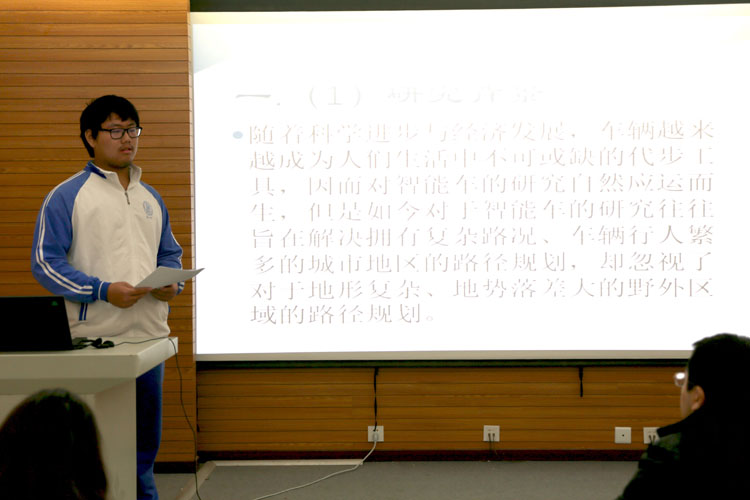 一.（1）研究背景
•随着科学进步与经济发展，车辆越来
越成为人们生活中不可或缺的代步工
具，因而对智能车的研究自然应运而
生，但是如今对于智能车的研究往往
旨在解决拥有复杂路况、车辆行人繁
多的城市地区的路径规划，却忽视了
对于地形复杂、地势落差大的野外区
域的路径规划。